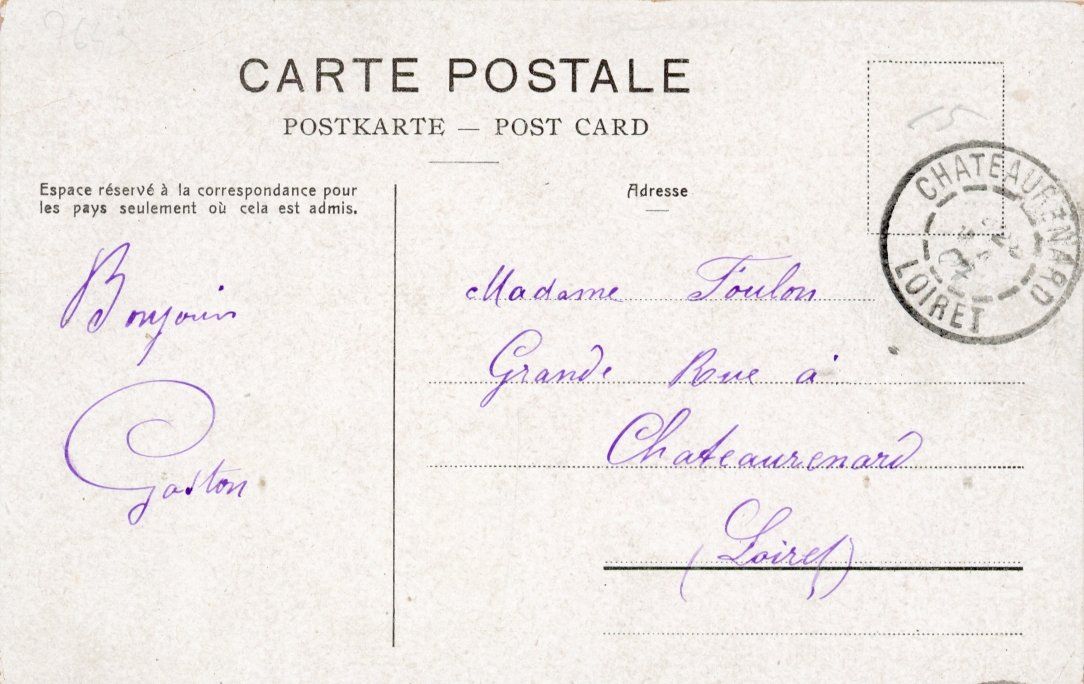 CARTE POSTALE
POSTKARTE — POST CARD
Espace réservé à la correspondance pour
les pays seulement où cela est admis.
Adresse
Bonjour
Gaston
Madame Foulon
Grande Rue à
Chateaurenard
(Loiret)
CHATEAURENARD
LOIRET